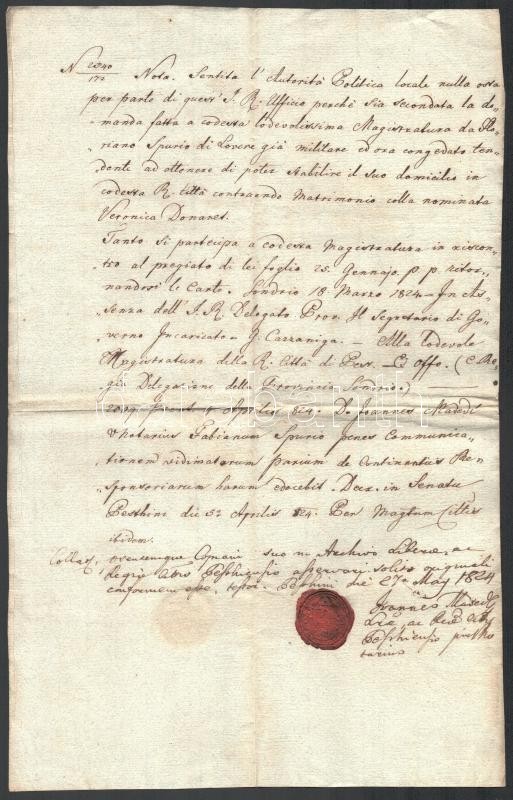 N 2040/172 Nota. Sentita l'Autorità Politica locale nulla osta
per parte di quest' I. R. Ufficio perchè sia secondata la do-
manda fatta a codesta lodevolissima Magistratura da Flo-
riano Spurio di Lovere già militare ed ora congedato ten-
dente ad ottenere di poter stabilire il suo domicilio in
codesta R. Città contraendo Matrimonio colla nominata
Veronica Donaret.
Tanto si partecipa a codesta Magistratura in riscon-
tro al pregiato di lei foglio 25. Gennajo p. p. ritor-
nandosi le Carte. Sondrio 18 Marzo 1824 – In As-
senza dell' I. R. Delegato Prov. Il Segretario di Go-
verno Incaricato – G. Cazzaniga. – Alla Lodevole
Magistratura della R. Città di Pest. Offo. (C. Re-
gia Delegazione della Provincia Sondrio.)
Aprilis 824. D. Joannes
Notarius Fabianum Spurio penes Communica-
tionem vidimatarum parium de Continentiis Re-
sponsoriarum harum edocebit. Datae. in Senatu
Pesthini die 5a Aprilis 824. Per Magtum Cittis
ibidem.
Collat. suo in Archivo Liberae, ac
Regiae Ctis Pesthiensis asservari solito originali
conformem esse, testor. Pesthini die 27a May 1824
Joannes
Lrae, ac Regae Ctis
Pesthiensis
tarius